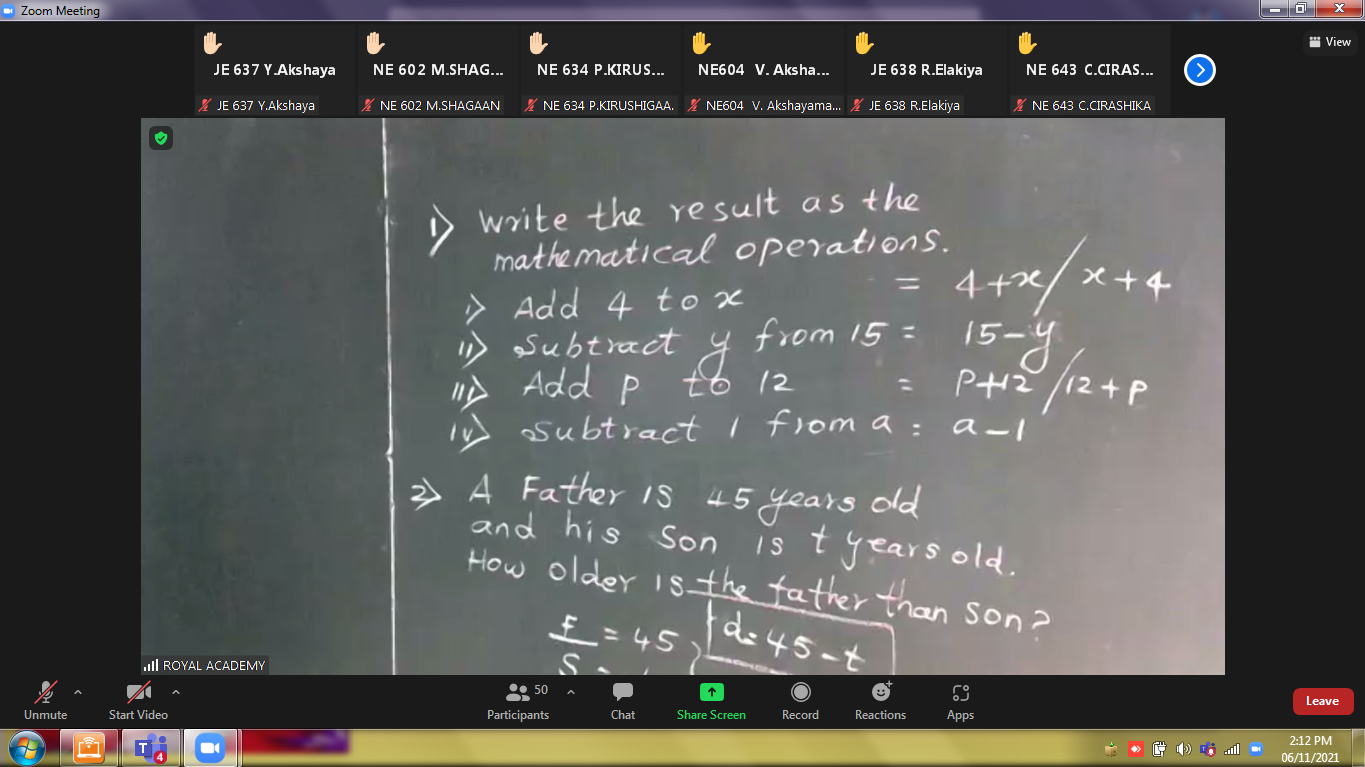 Zoom Meeting
View
JE 637 Y.Akshaya
NE 602 M.SHAG...
NE 634 P.KIRUS...
NE604 V. Aksha...
JE 638 R.Elakiya
NE 643 C.CIRAS...
JE 637 Y.Akshaya
NE 602 M.SHAGAAN
NE 634 P.KIRUSHIGAA.
NE604 V. Akshayama...
JE 638 R.Elakiya
NE 643 C.CIRASHIKA
1) Write the result as the
mathematical operations.
i) Add 4 to x = 4+x / x+4
ii) Subtract y from 15 = 15-y
iii) Add p to 12 = P+12 / 12+p
iv) Subtract 1 from a = a-1
2) A Father is 45 years old
and his Son is t years old.
How older is the father than son?
F = 45 d = 45-t
S
ROYAL ACADEMY
Unmute
Start Video
50
Participants
Chat
Share Screen
Record
Reactions
Apps
Leave
4
2:12 PM
06/11/2021